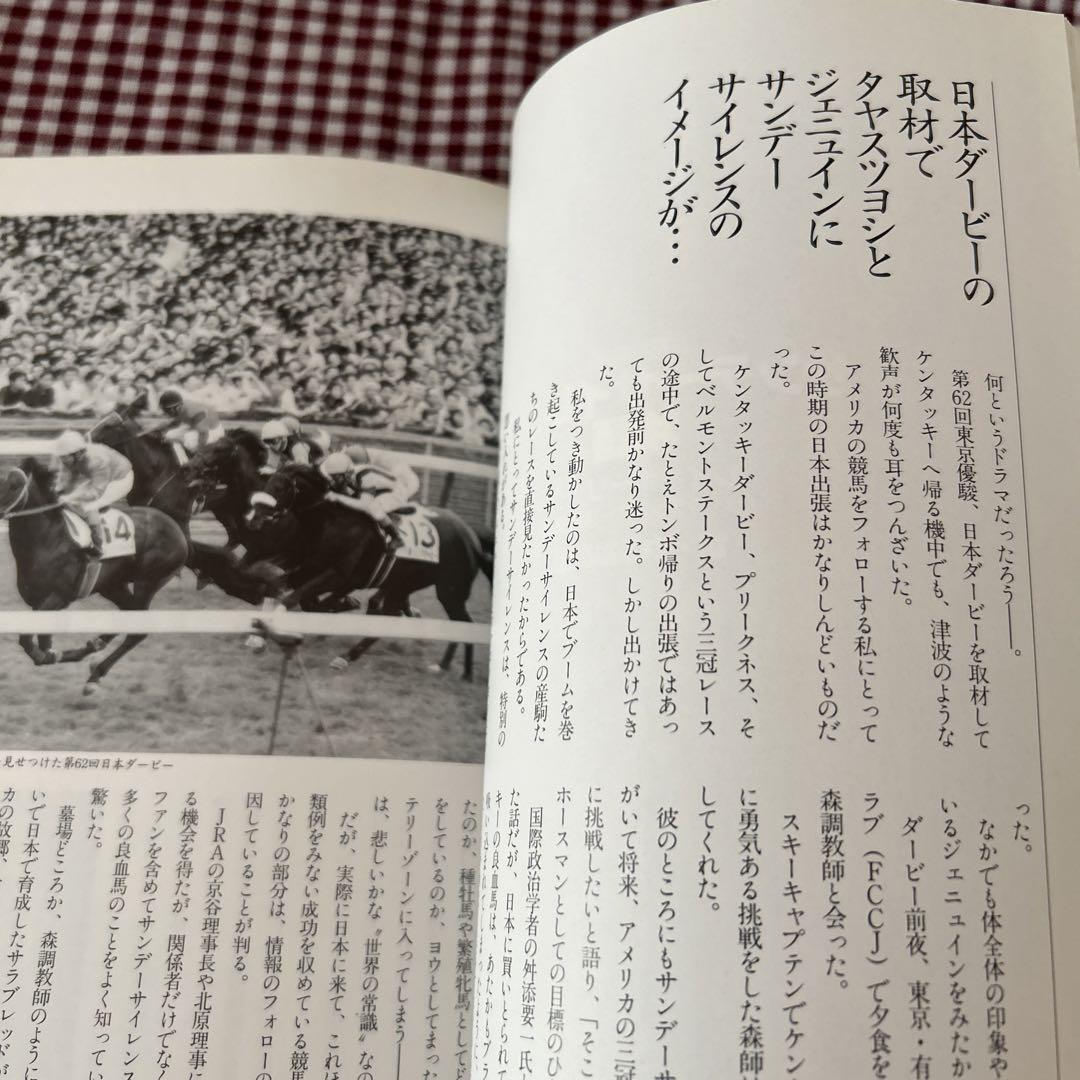 日本ダービーの
取材で
タヤスツヨシと
ジェニュインに
サンデー
サイレンスの
イメージが…
何というドラマだったろう——。
第62回東京優駿、日本ダービーを取材して
ケンタッキーへ帰る機中でも、津波のような
歓声が何度も耳をつんざいた。
アメリカの競馬をフォローする私にとって
この時期の日本出張はかなりしんどいものだ
った。
ケンタッキーダービー、プリークネス、そ
してベルモントステークスという三冠レース
の途中で、たとえトンボ帰りの出張ではあっ
ても出発前かなり迷った。しかし出かけてき
た。
私をつき動かしたのは、日本でブームを巻
き起こしているサンデーサイレンスの産駒た
ちのレースを直接見たかったからである。
私にとってサンデーサイレンスは、特別の
った。
なかでも体全体の印象や
いるジェニュインをみたか
ダービー前夜、東京・有
ラブ（FCCJ）で夕食を
森調教師と会った。
スキーキャプテンでケン
に勇気ある挑戦をした森師は
してくれた。
彼のところにもサンデーサ
がいて将来、アメリカの三冠
に挑戦したいと語り、「そこ
ホースマンとしての目標のひ
国際政治学者の舛添要一氏
た話だが、日本に買いとられて
キーの良血馬は、あたかもブラ
14
13
見せつけた第62回日本ダービー
たのか、種牡馬や繁殖牝馬としてど
をしているのか、ヨウとしてまった
テリーゾーンに入ってしまう——
は、悲しいかな〝世界の常識〟なの
だが、実際に日本に来て、これほ
類例をみない成功を収めている競馬
かなりの部分は、情報のフォローの
因していることが判る。
JRAの京谷理事長や北原理事に
る機会を得たが、関係者だけでなく
ファンを含めてサンデーサイレンス
多くの良血馬のことをよく知ってい
驚いた。
墓場どころか、森調教師のように
いで日本で育成したサラブレッドが
カの故郷、